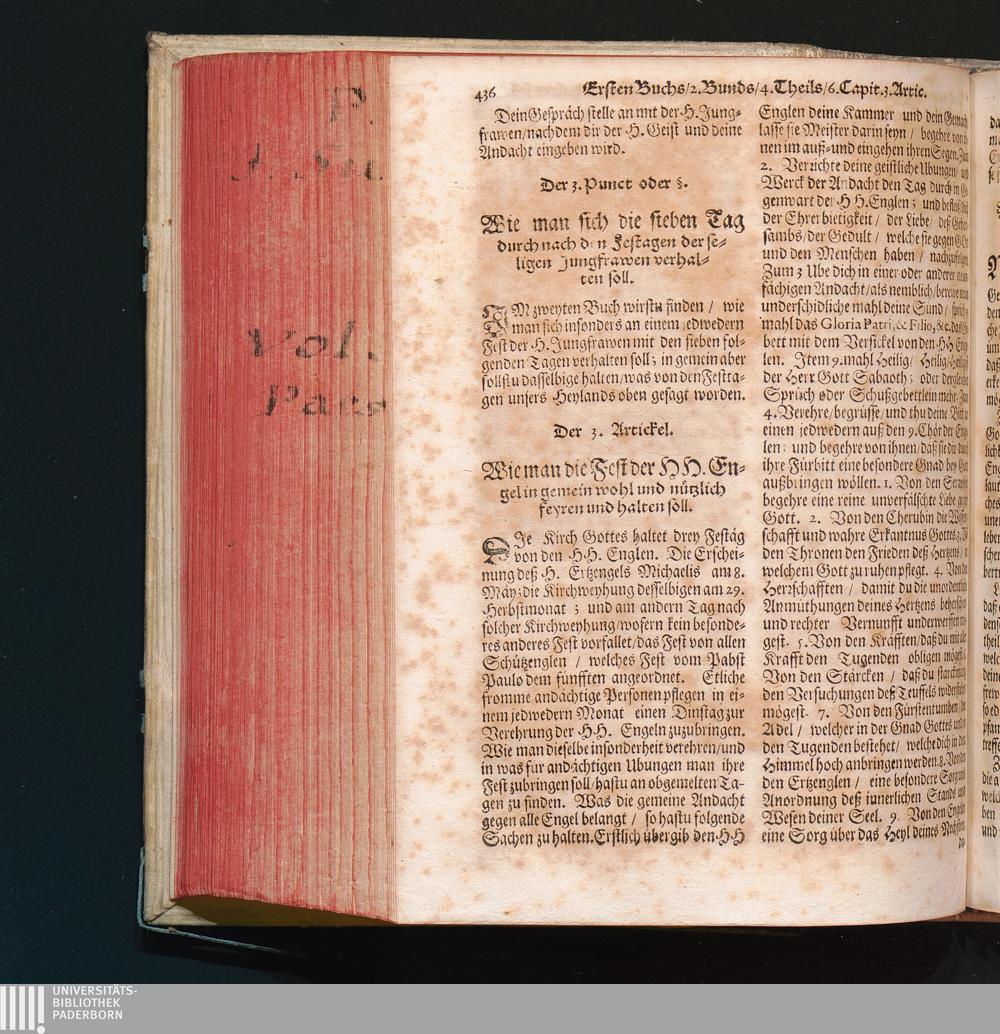 P.
Vol.
Pars
436 Ersten Buchs/2.Bunds/4.Theils/6.Capit.3.Artic.
Dein Gespräch stelle an mit der H. Jung-
frawen/nachdem dir der H. Geist und deine
Andacht eingeben wird.
Der 3. Punct oder §.
Wie man sich die sieben Tag
durch nach den Festagen der se-
ligen Jungfrawen verhal-
ten soll.
IM zweyten Buch wirstu finden / wie
man sich insonders an einem jedwedern
Fest der H. Jungfrawen mit den sieben fol-
genden Tagen verhalten soll; in gemein aber
sollstu dasselbige halten/was von den Festta-
gen unsers Heylands oben gesagt worden.
Der 3. Artickel.
Wie man die Fest der HH. En-
gel in gemein wohl und nützlich
feyren und halten soll.
DIe Kirch Gottes haltet drey Festäg
von den HH. Englen. Die Erschei-
nung deß H. Ertzengels Michaelis am 8.
May; die Kirchweyhung desselbigen am 29.
Herbstmonat; und am andern Tag nach
solcher Kirchweyhung/wofern kein besonde-
res anderes Fest vorfallet/das Fest von allen
Schützenglen / welches Fest vom Pabst
Paulo dem fünfften angeordnet. Etliche
fromme andächtige Personen pflegen in ei-
nem jedwedern Monat einen Dinstag zur
Verehrung der HH. Engeln zuzubringen.
Wie man dieselbe insonderheit verehren/und
in was für andächtigen Ubungen man ihre
Fest zubringen soll/hastu an obgemelten Ta-
gen zu finden. Was die gemeine Andacht
gegen alle Engel belangt / so hastu folgende
Sachen zu halten. Erstlich übergib den HH
Englen deine Kammer und dein Gemach
lasse sie Meister darin seyn / begehre von
nen im auß- und eingehen ihren Segen. Zum
2. Verrichte deine geistliche Ubungen und
Werck der Andacht den Tag durch in
genwart der HH. Englen; und
der Ehrerbietigkeit / der Liebe / deß
sambs/der Gedult / welche sie gegen
und den Menschen haben / nachzufolgen.
Zum 3 Ube dich in einer oder anderer
fächigen Andacht/als nemblich/
underschidliche mahl deine Sünd /
mahl das Gloria Patri, & Filio, &c. das
bett mit dem Versickel von den HH
len. Item 9. mahl Heilig/ Heilig/
der Herr Gott Sabaoth; oder dergleichen
Spruch oder Schußgebettlein mehr. Zum
4. Verehre/begrüsse/und thu deine Bitt an
einen jedwedern auß den 9. Chör der
len; und begehre von ihnen/daß sie dir
ihre Fürbitt eine besondere Gnad bey
außbringen wöllen. 1. Von den
begehre eine reine unverfälschte Liebe
Gott. 2. Von den Cherubin die
schafft und wahre Erkantnus Gottes. 3.
den Thronen den Frieden deß Hertzens /
welchem Gott zu ruhen pflegt. 4. Von den
Herrschafften / damit du die unordentliche
Anmüthungen deines Hertzens beherschen
und rechter Vernunfft underwerffen
gest. 5. Von den Kräfften/daß du mit aller
Krafft den Tugenden obligen mögest.
Von den Stärcken / daß du
den Versuchungen deß Teuffels
mögest. 7. Von den Fürstentumben /
Adel / welcher in der Gnad Gottes und
den Tugenden bestehet/ welche dich in den
Himmel hoch anbringen werden. 8. Von den
den Ertzenglen / eine besondere Sorg und
Anordnung deß innerlichen Stands und
Wesen deiner Seel. 9. Von den Englen
eine Sorg über das Heyl deines Nechsten
UNIVERSITÄTS-
BIBLIOTHEK
PADERBORN